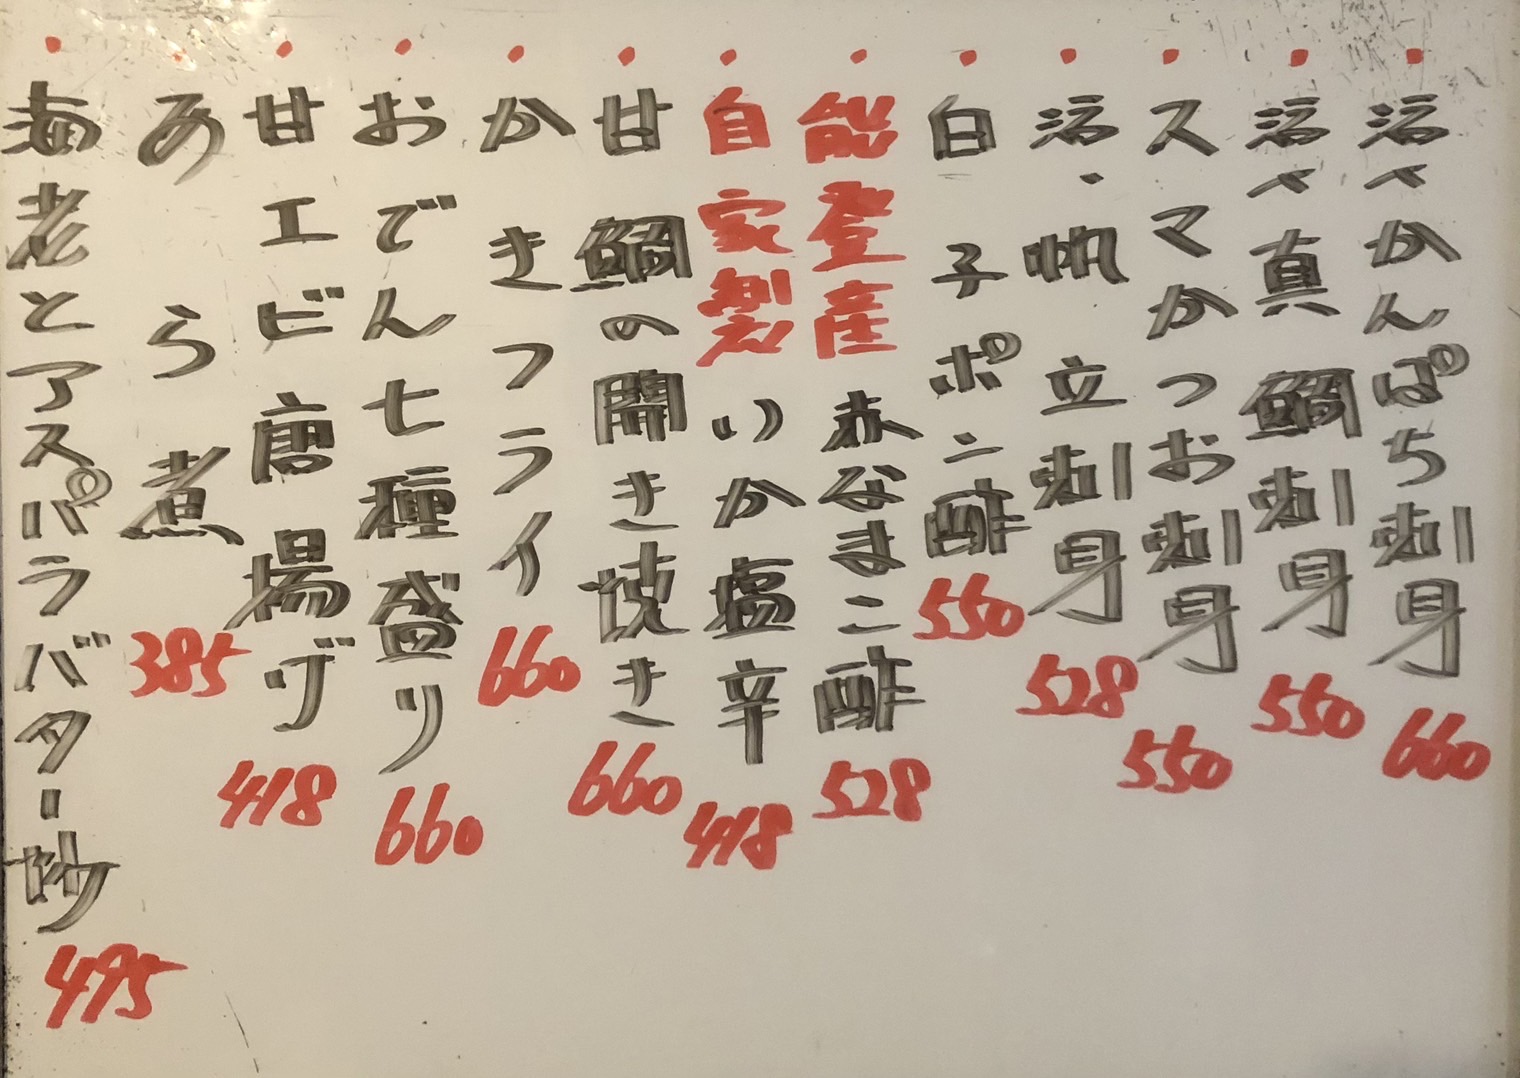 ・活〆かんぱち刺身 660
・活〆真鯛刺身 550
・スマかつお刺身 550
・活・帆立刺身 528
・白子ポン酢 550
・能登産 赤なまこ酢 528
・自家製 いか塩辛 418
・甘鯛の開き焼き 660
・かきフライ 660
・おでん七種盛り 660
・甘エビ唐揚げ 418
・あら煮 385
・海老とアスパラバター炒 495